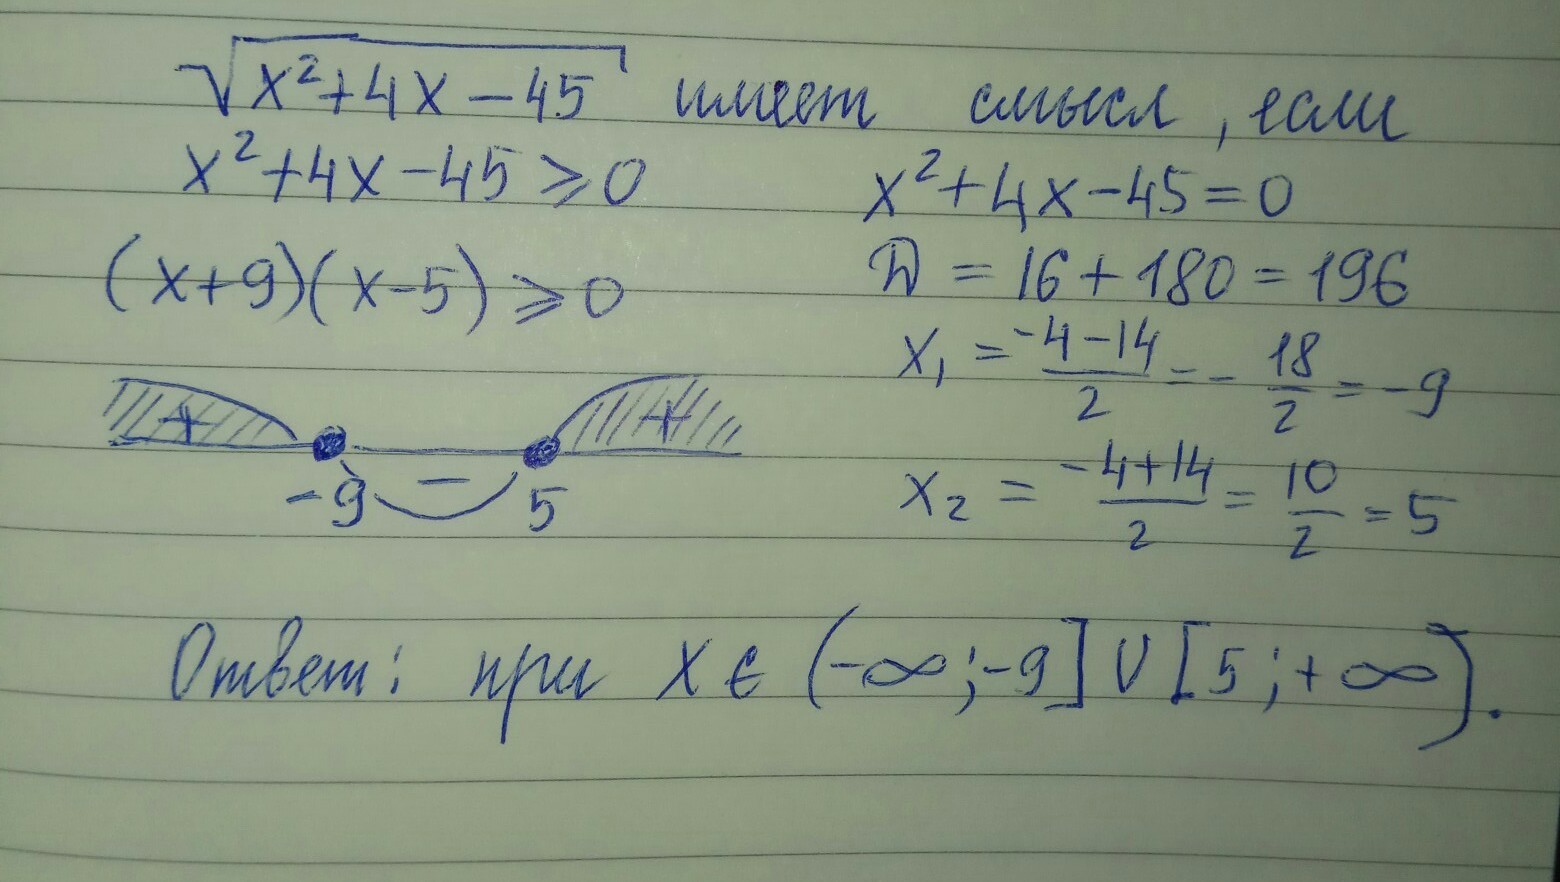 √(x²+4x-45) имеет смысл, если
x²+4x-45⩾0
(x+9)(x-5)⩾0
+ +
-
-9 5
x²+4x-45=0
D = 16+180=196
x₁ = (-4-14)/2 = - 18/2 = -9
x₂ = (-4+14)/2 = 10/2 = 5
Ответ: при x ∈ (-∞;-9] ∪ [5;+∞).